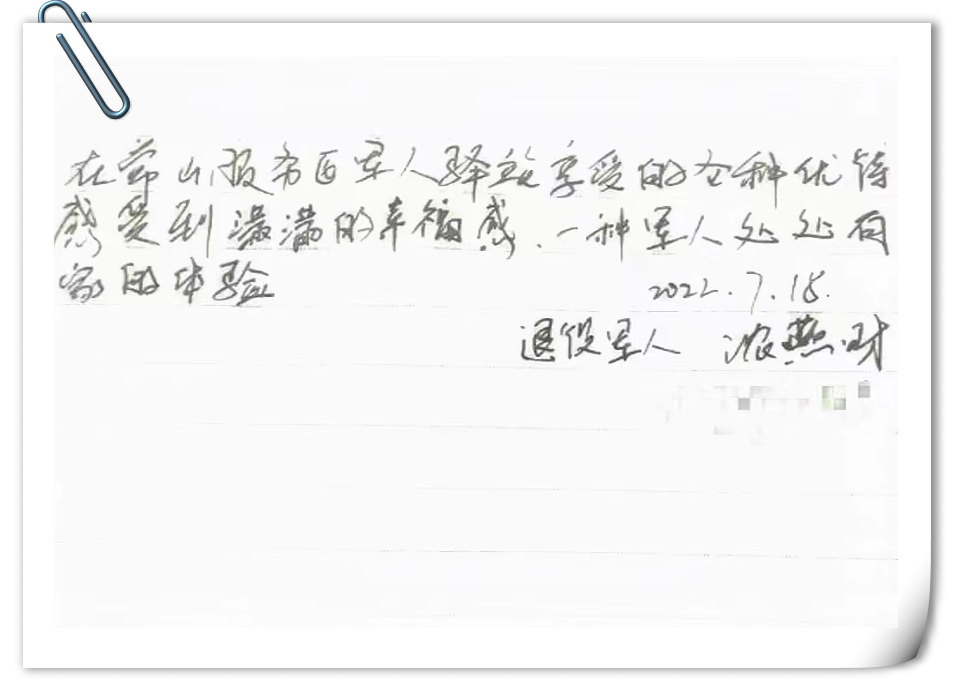 在常山服务区军人驿站享受的各种优待
感受到满满的幸福感、一种军人处处有
家的体验
2022.7.18.
退役军人 燕财